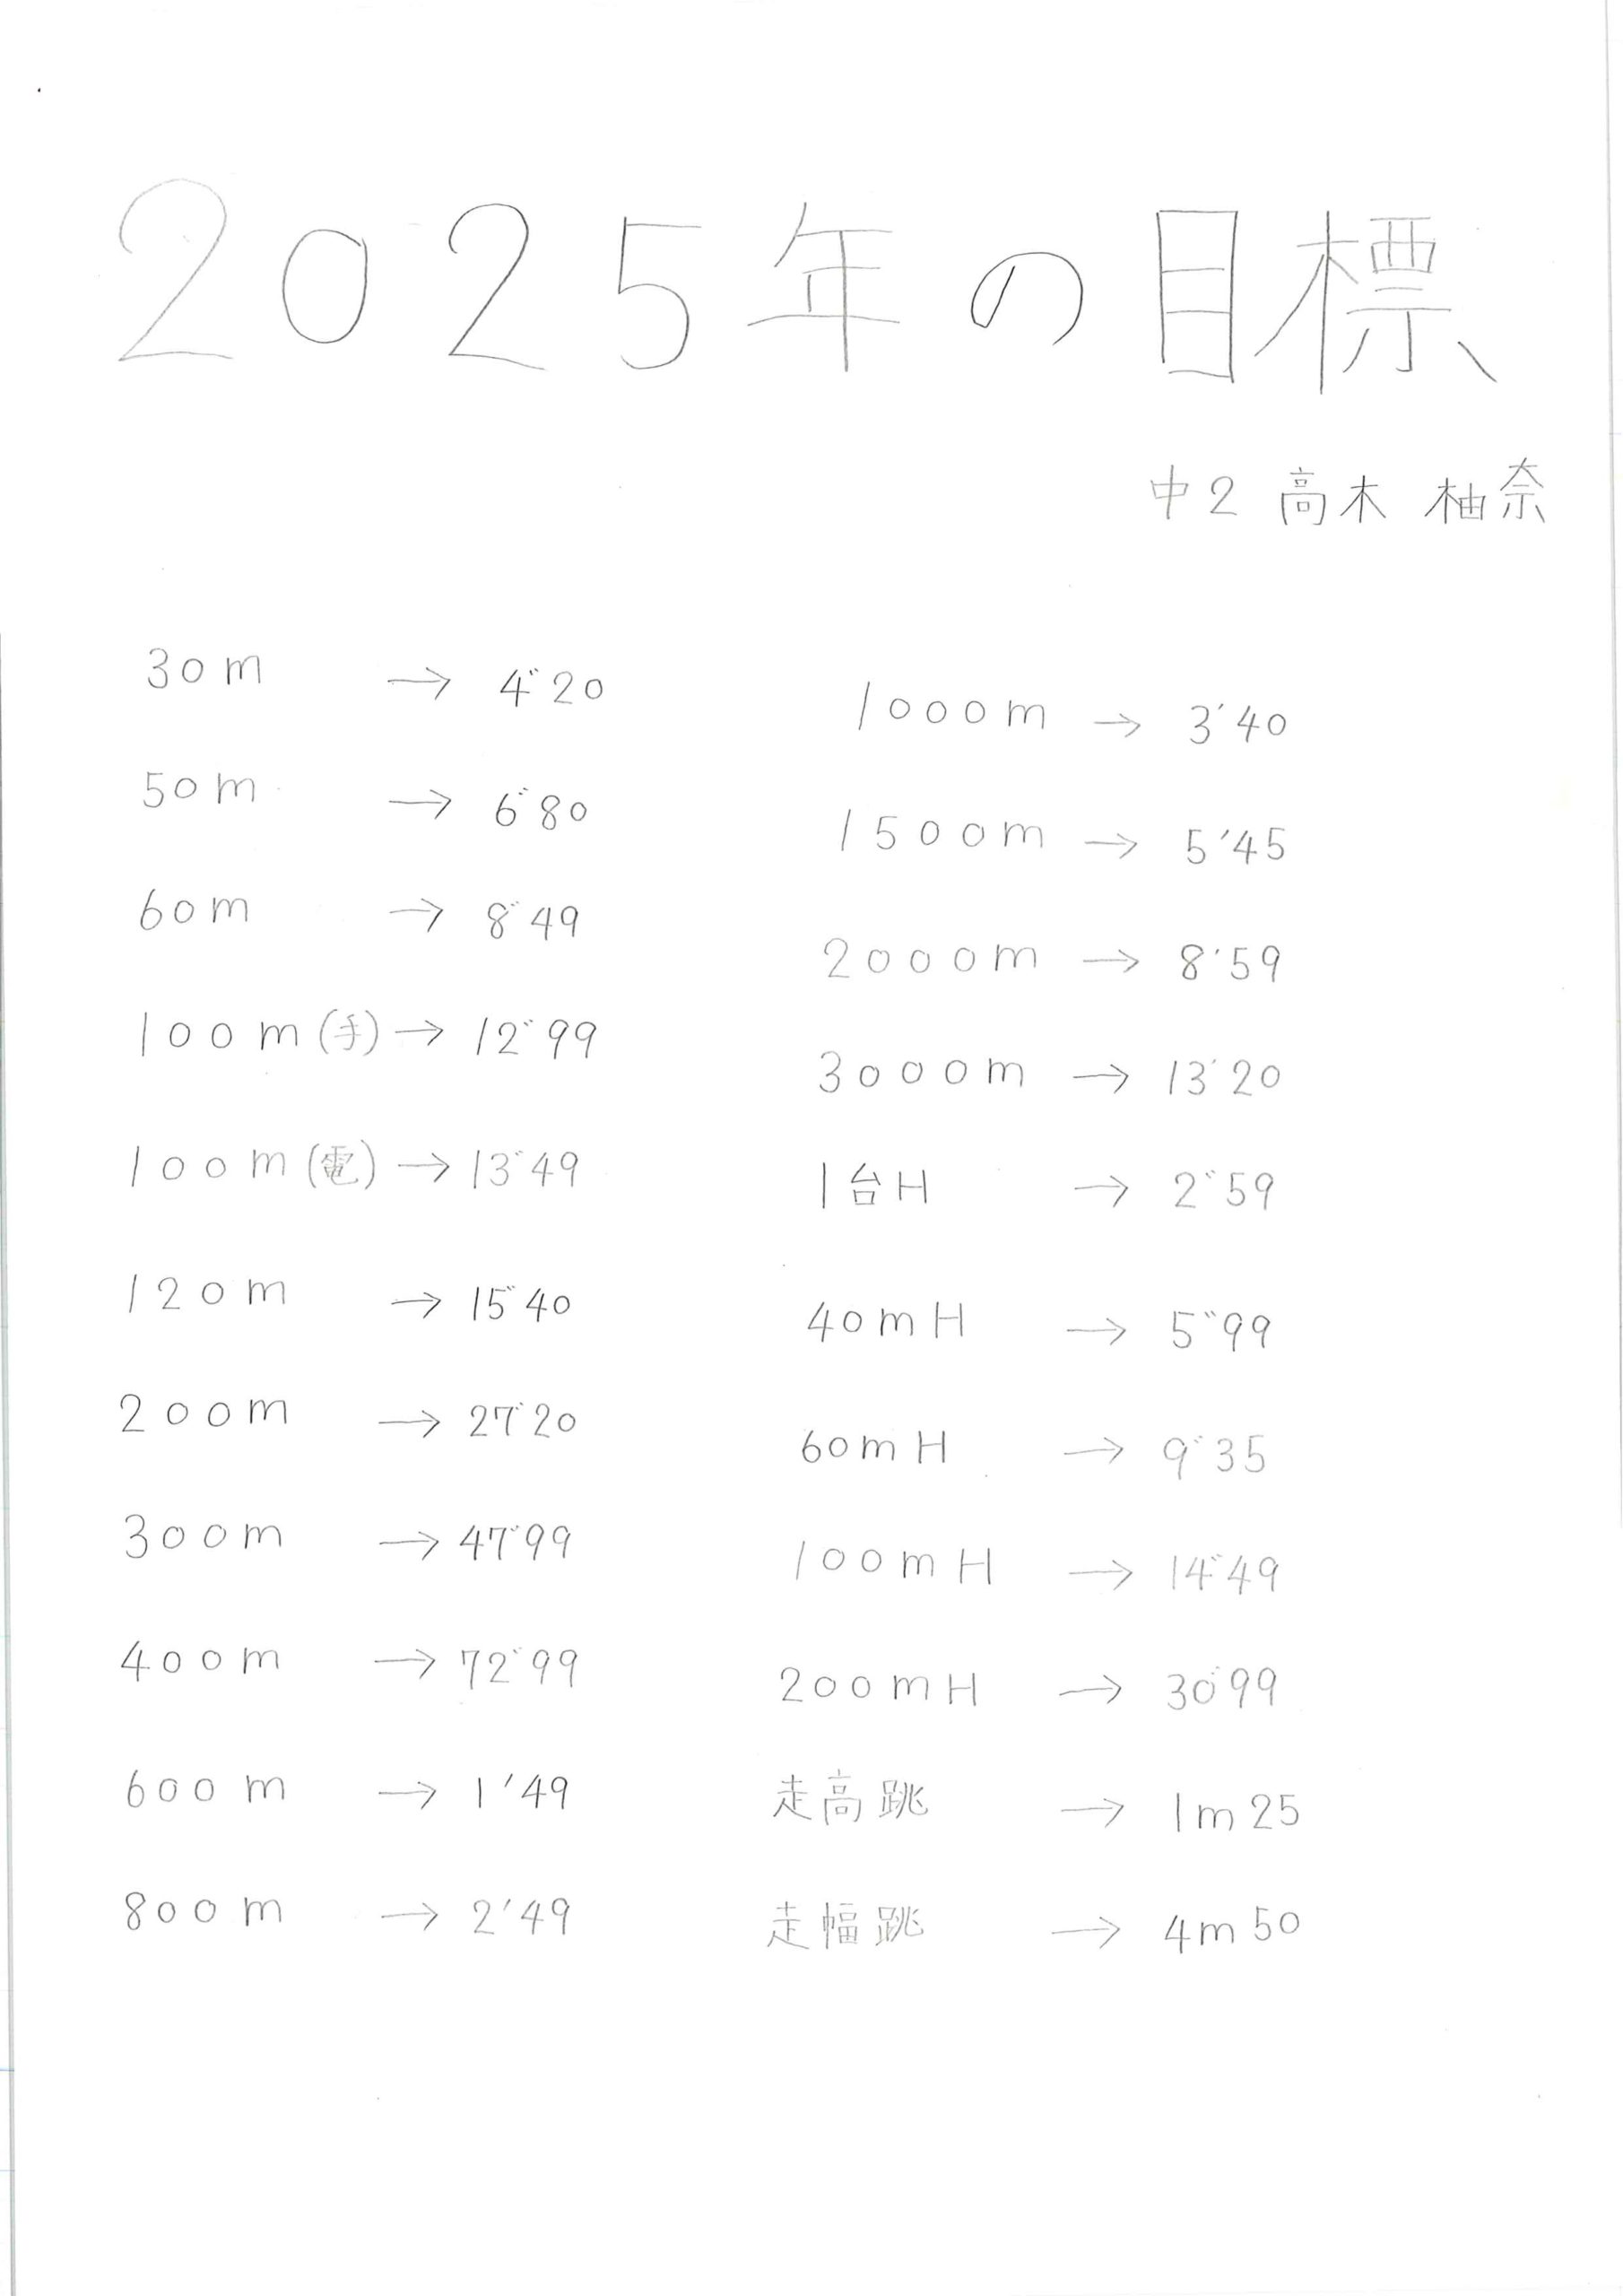 2025年の目標
中2 高木 柚奈
30m → 4"20
50m → 6"80
60m → 8"49
100m(手) → 12"99
100m(電) → 13"49
120m → 15"40
200m → 27"20
300m → 47"99
400m → 72"99
600m → 1'49
800m → 2'49
1000m → 3'40
1500m → 5'45
2000m → 8'59
3000m → 13'20
1台H → 2"59
40mH → 5"99
60mH → 9"35
100mH → 14"49
200mH → 30"99
走高跳 → 1m25
走幅跳 → 4m50